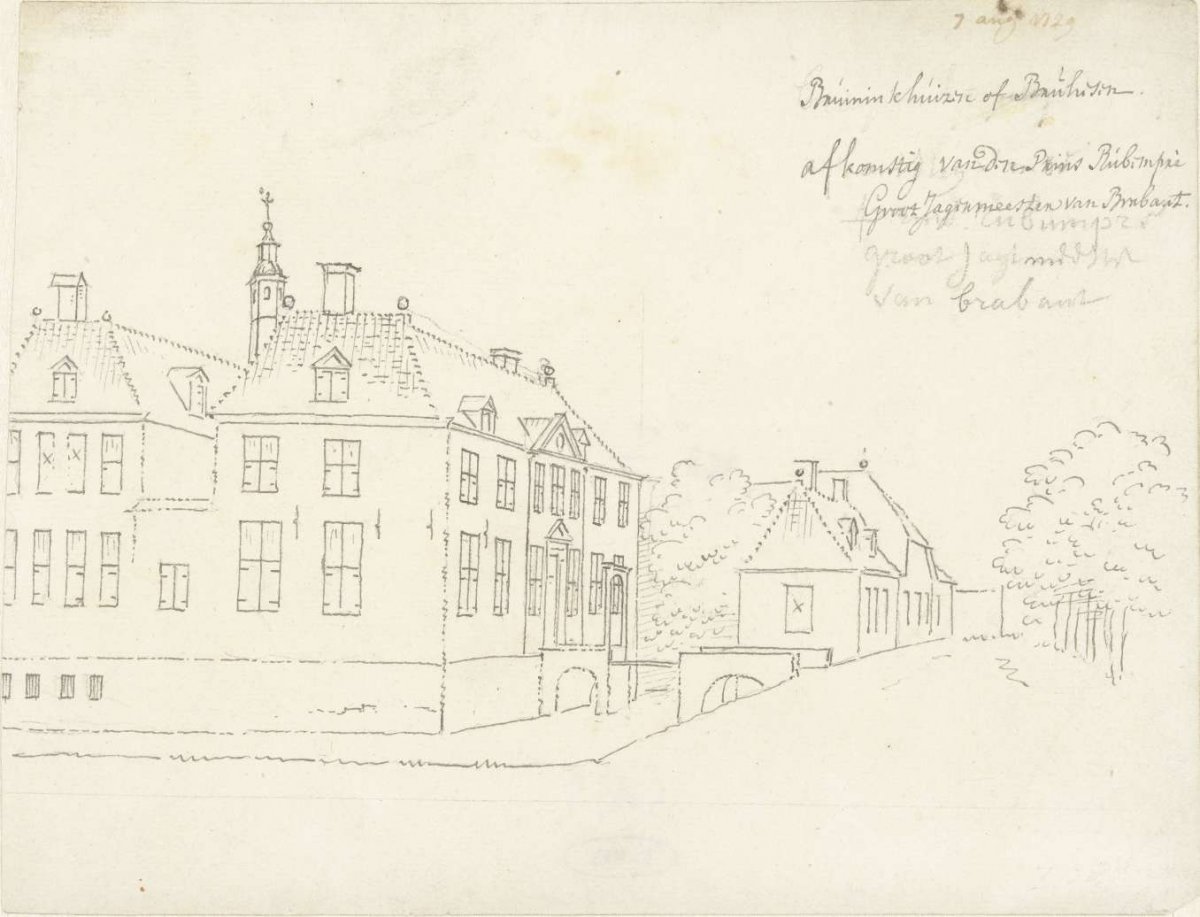 7 aug 1729
Bruininkhuizen of Bruhesen.
afkomstig van den Prins Rubempré
Groot Jagermeester van Brabant.
Rubempre
groot Jagtmeester
van brabant